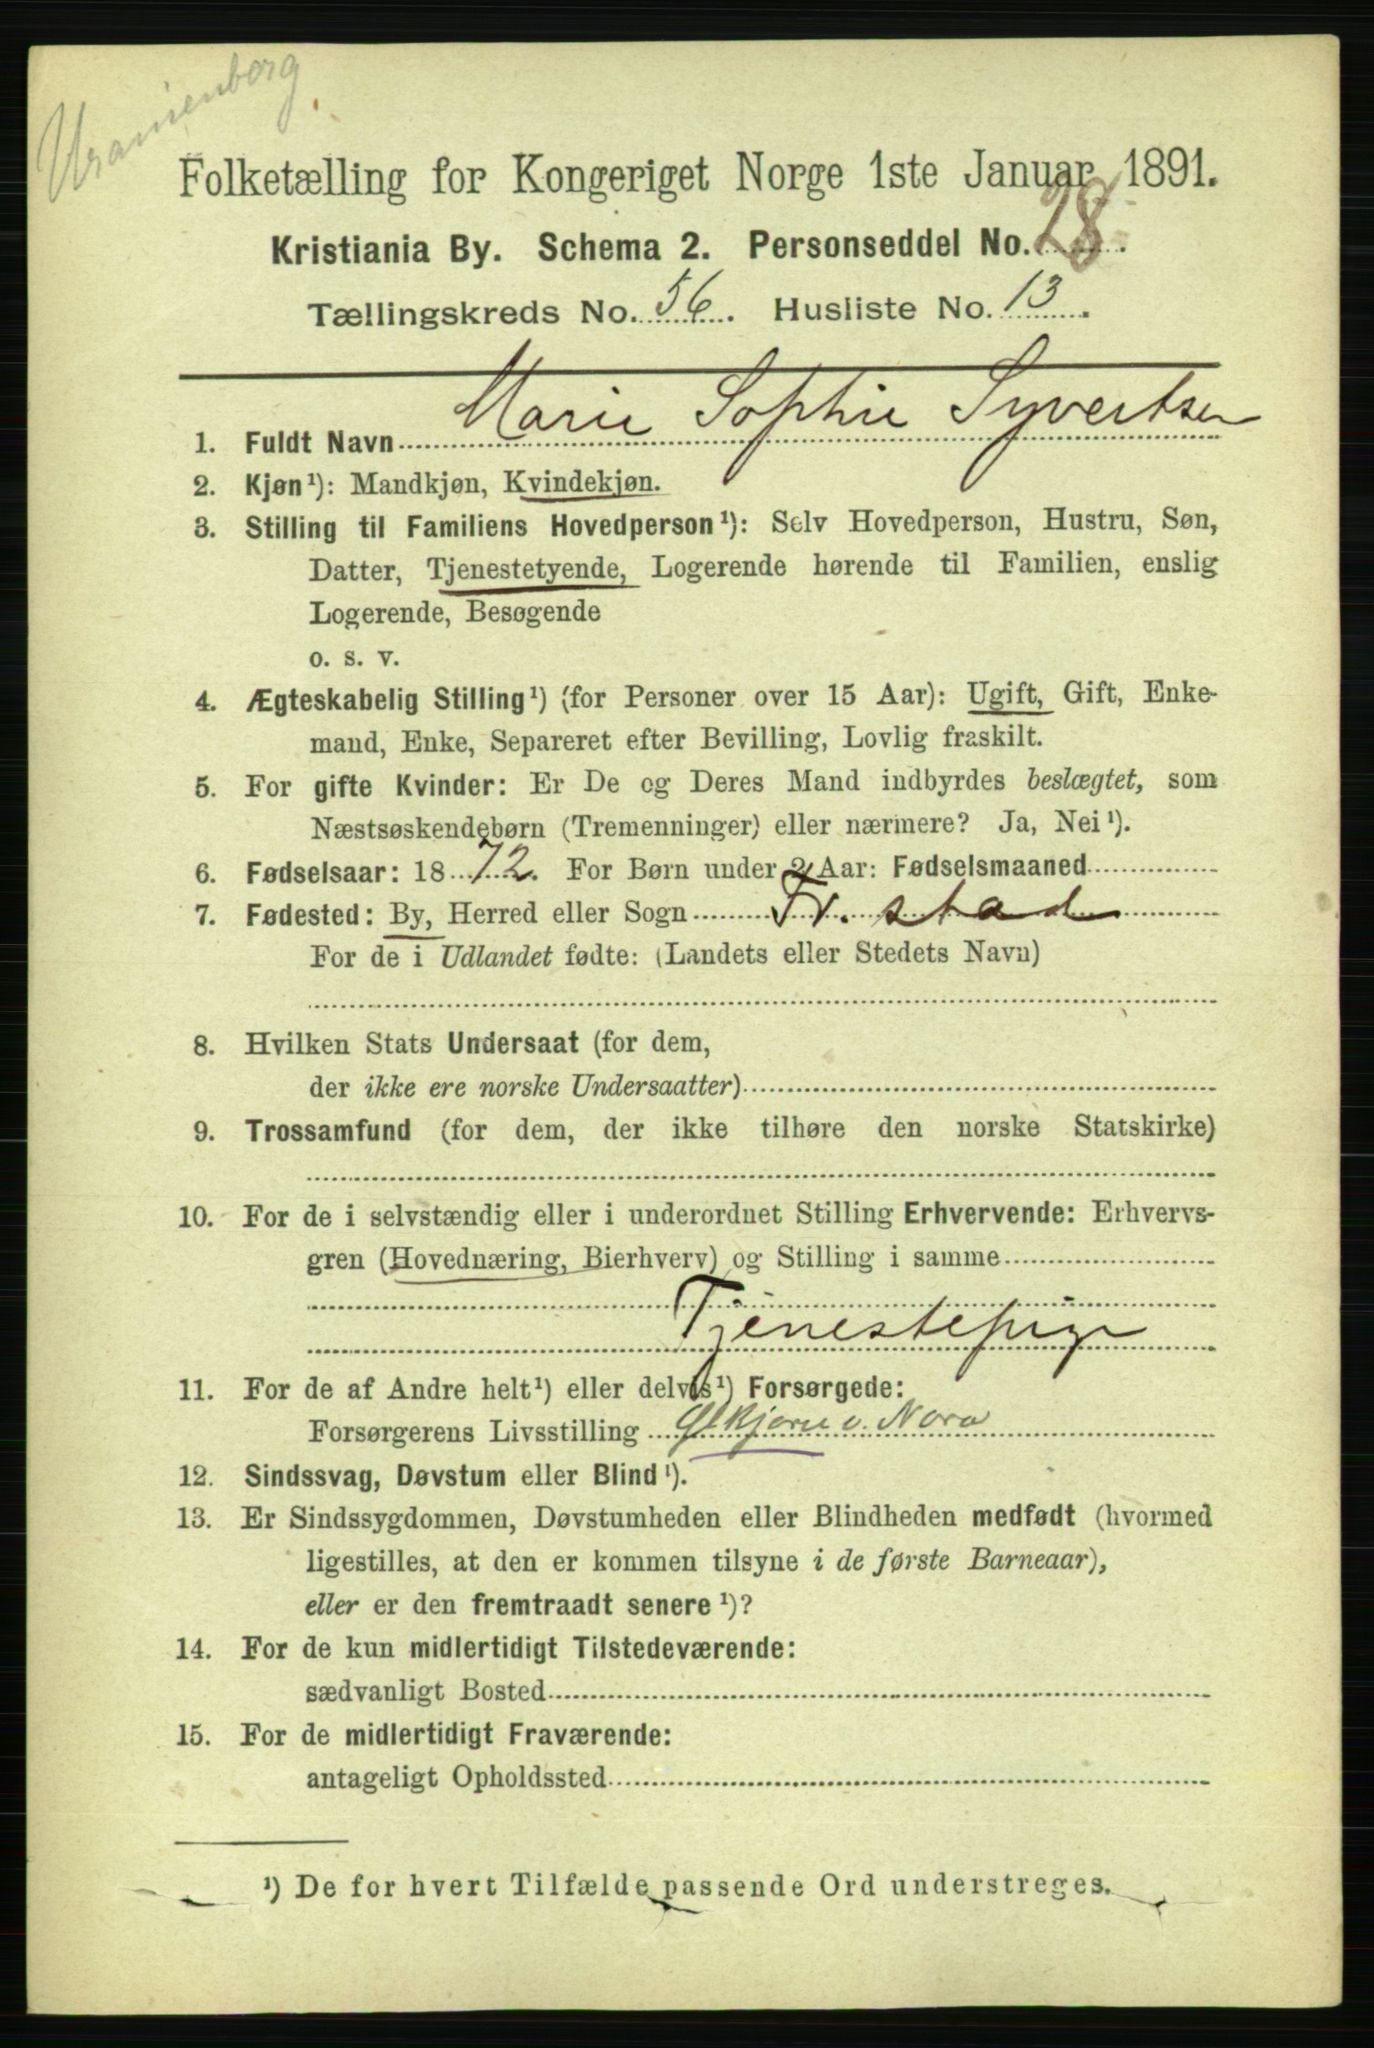 Uranienborg
Folketælling for Kongeriget Norge 1ste Januar 1891.
Kristiania By. Schema 2. Personseddel No. 28.
Tællingskreds No. 56. Husliste No. 13.
1. Fuldt Navn Marie Sophie Syvertsen
2. Kjøn¹): Mandkjøn, Kvindekjøn.
3. Stilling til Familiens Hovedperson¹): Selv Hovedperson, Hustru, Søn,
Datter, Tjenestetyende, Logerende hørende til Familien, enslig
Logerende, Besøgende
o. s. v.
4. Ægteskabelig Stilling¹) (for Personer over 15 Aar): Ugift, Gift, Enke-
mand, Enke, Separeret efter Bevilling, Lovlig fraskilt.
5. For gifte Kvinder: Er De og Deres Mand indbyrdes beslægtet, som
Næstsøskendebørn (Tremenninger) eller nærmere? Ja, Nei¹).
6. Fødselsaar: 1872. For Børn under 2 Aar: Fødselsmaaned
7. Fødested: By, Herred eller Sogn Fr.stad
For de i Udlandet fødte: (Landets eller Stedets Navn)
8. Hvilken Stats Undersaat (for dem,
der ikke ere norske Undersaatter)
9. Trossamfund (for dem, der ikke tilhøre den norske Statskirke)
10. For de i selvstændig eller i underordnet Stilling Erhvervende: Erhvervs-
gren (Hovednæring, Bierhverv) og Stilling i samme
Tjenestepige
11. For de af Andre helt¹) eller delvis¹) Forsørgede:
Forsørgerens Livsstilling
12. Sindssvag, Døvstum eller Blind¹).
13. Er Sindssygdommen, Døvstumheden eller Blindheden medfødt (hvormed
ligestilles, at den er kommen tilsyne i de første Barneaar),
eller er den fremtraadt senere¹)?
14. For de kun midlertidigt Tilstedeværende:
sædvanligt Bosted
15. For de midlertidigt Fraværende:
antageligt Opholdssted
¹) De for hvert Tilfælde passende Ord understreges.